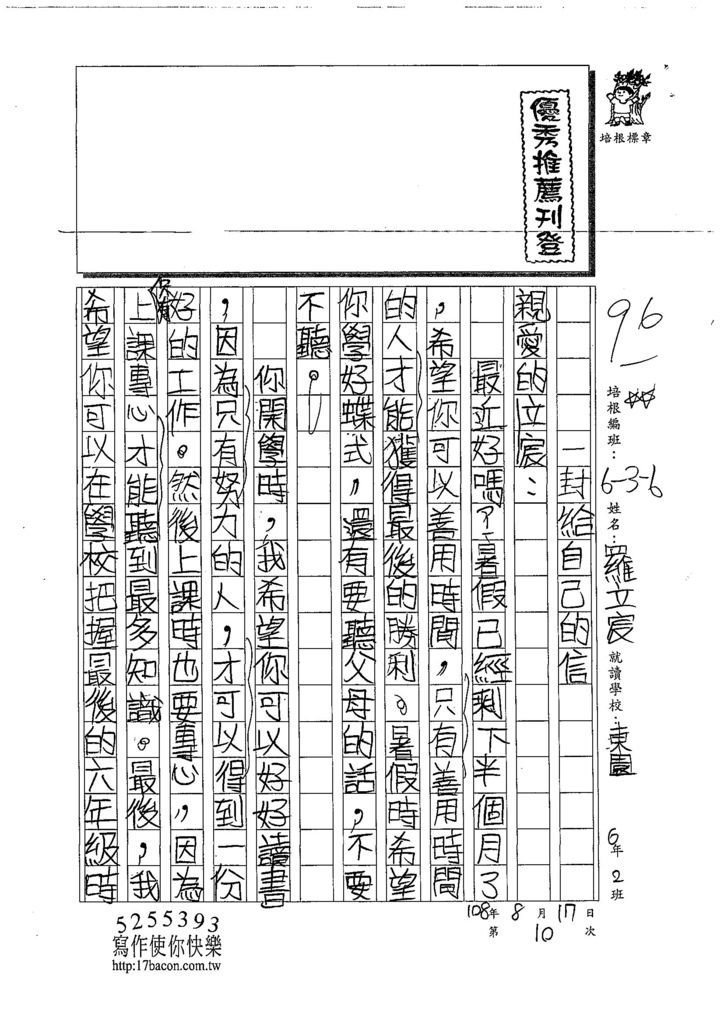 培根標章
優秀推薦刊登
96
培根編班：6-3-6 姓名：羅立宸 就讀學校：東園 6年2班
108年8月17日
第10次
一封給自己的信
親愛的立宸：
最近好嗎？暑假已經剩下半個月了
，希望你可以善用時間，只有善用時間
的人才能獲得最後的勝利。暑假時希望
你學好蝶式，還有要聽父母的話，不要
不聽。
你開學時，我希望你可以好好讀書
，因為只有努力的人，才可以得到一份
好的工作。然後上課時也要專心，因為
上課專心才能聽到最多知識。最後，我
希望你可以在學校把握最後的六年級時
5255393
寫作使你快樂
http:17bacon.com.tw